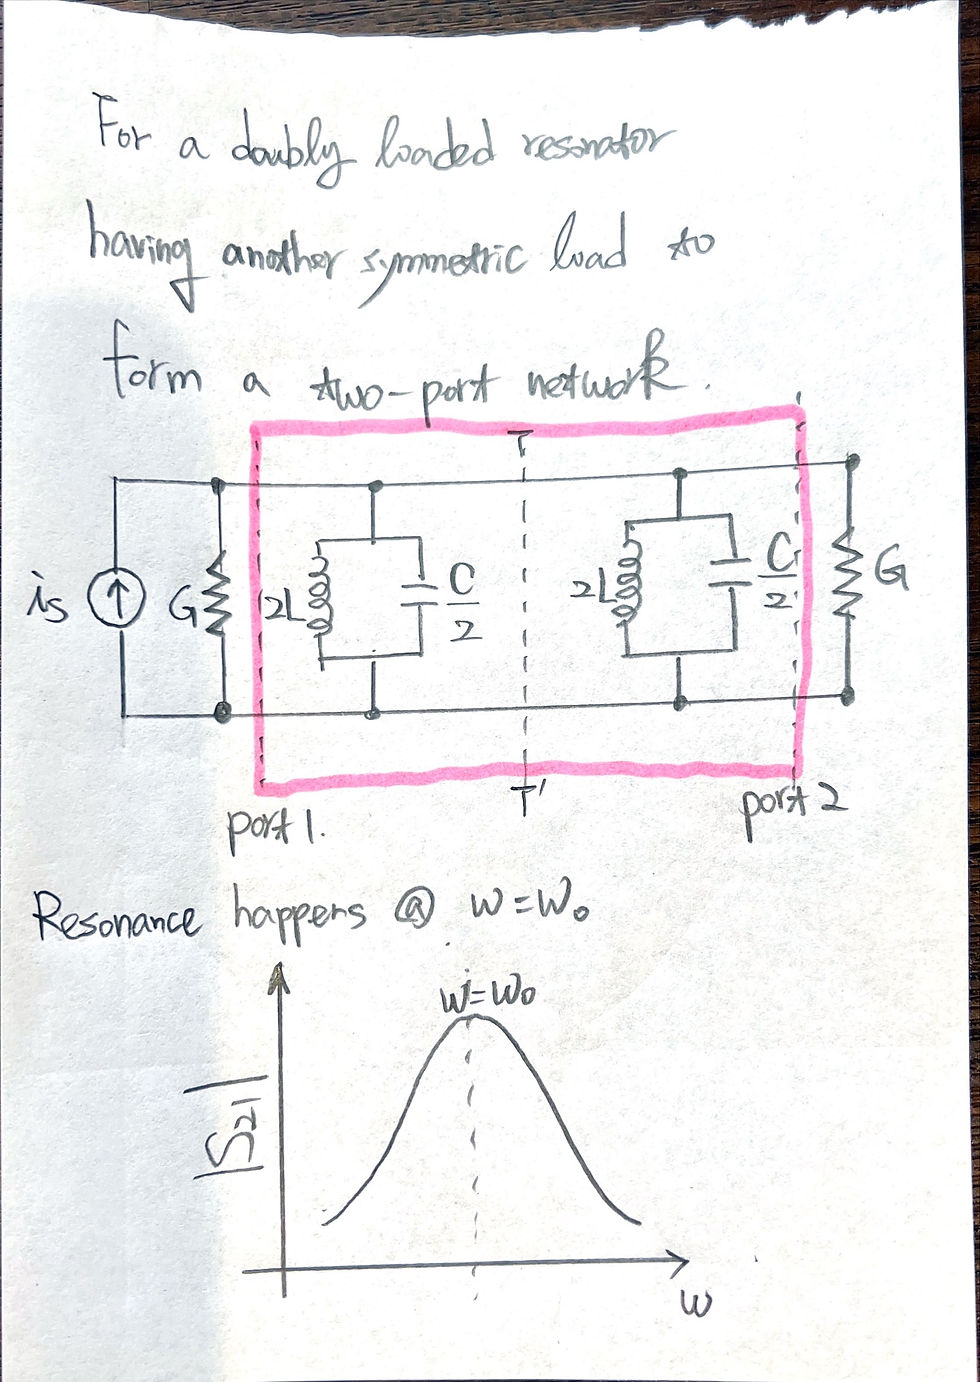 For a doubly loaded resonator
having another symmetric load to
form a two-port network.
T
is
G
2L
C/2
2L
C/2
G
T'
port 1.
port 2
Resonance happens @ w=w₀
w=w₀
|S₂₁|
w